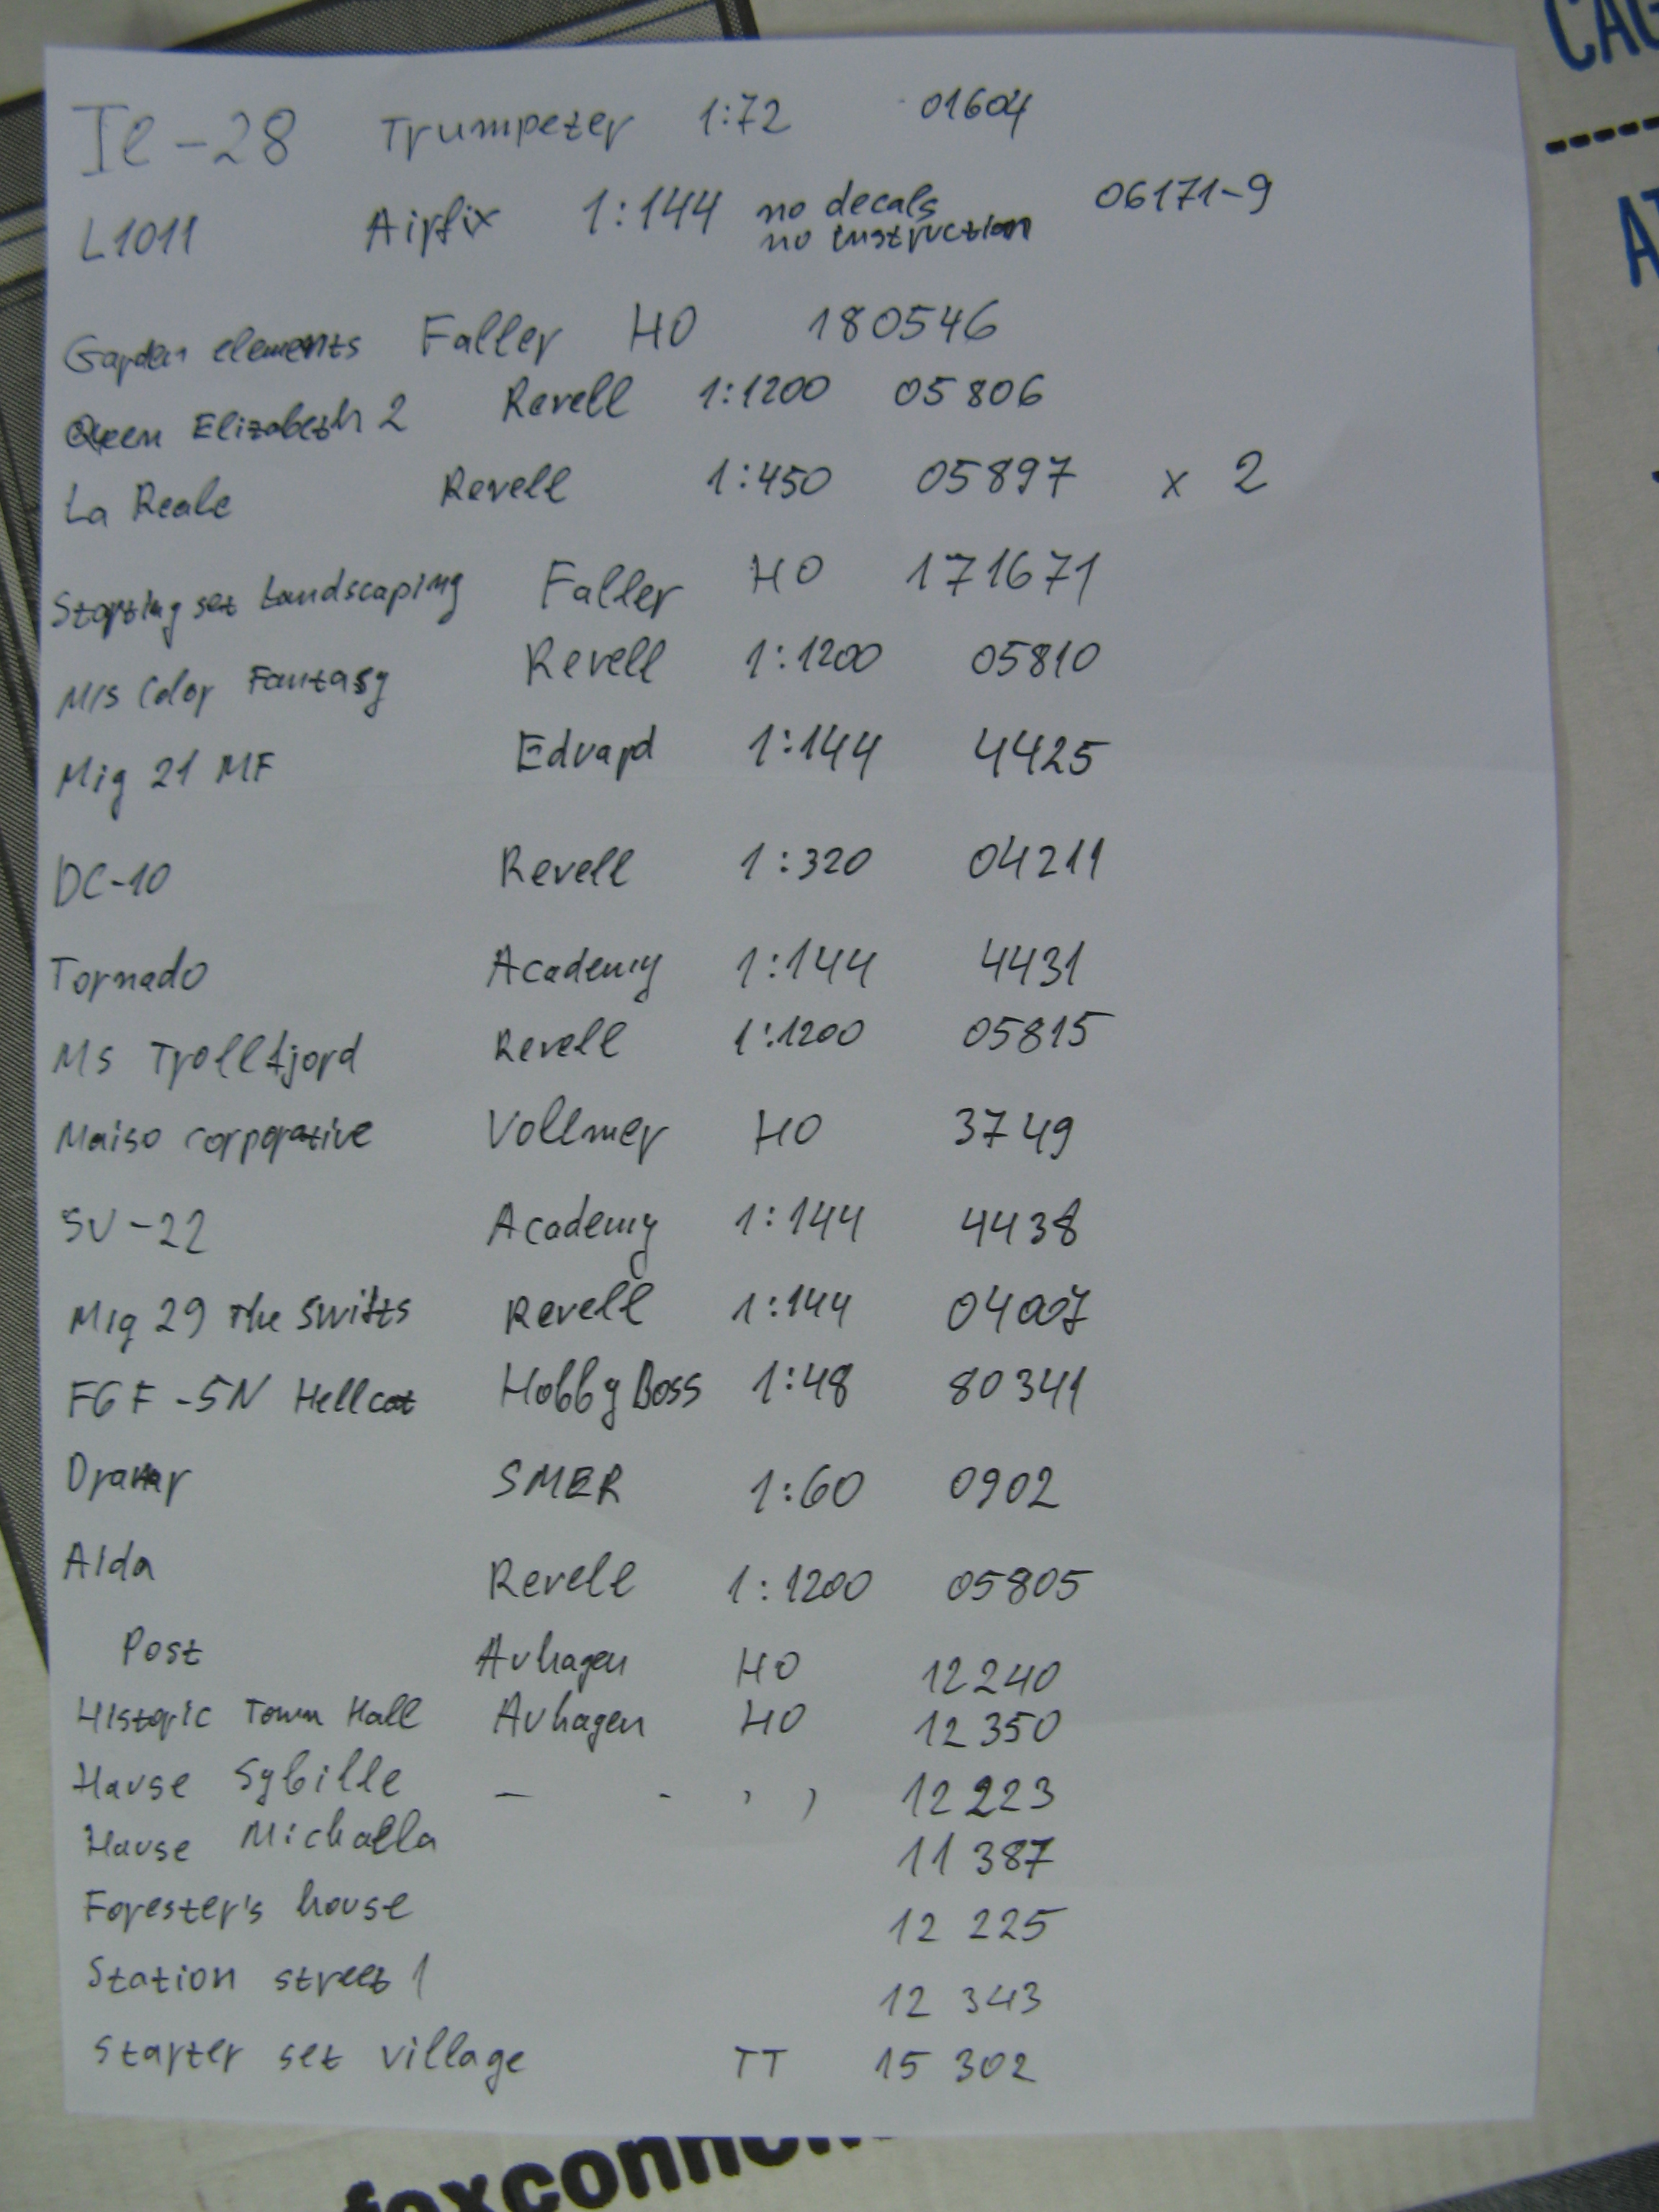 Il-28 Trumpeter 1:72 01604
L1011 Airfix 1:144 no decals 06171-9
no instruction
Garden elements Faller HO 180546
Queen Elizabeth 2 Revell 1:1200 05806
La Reale Revell 1:450 05897 x 2
Starting set Landscaping Faller HO 171671
M/S Color Fantasy Revell 1:1200 05810
Mig 21 MF Eduard 1:144 4425
DC-10 Revell 1:320 04211
Tornado Academy 1:144 4431
Ms Trollfjord Revell 1:1200 05815
Maiso corporative Vollmer HO 3749
SU-22 Academy 1:144 4438
Mig 29 The Swifts Revell 1:144 04007
F6F-5N Hellcat HobbyBoss 1:48 80341
SMER 1:60 0902
AIda Revell 1:1200 05805
Post Auhagen HO 12240
Historic Town Hall Auhagen HO 12350
Hause Sybille — - , , 12 223
Hause Michaela 11 387
Forester's house 12 225
Station street 1 12 343
Starter set village TT 15 302
foxconn
CAG